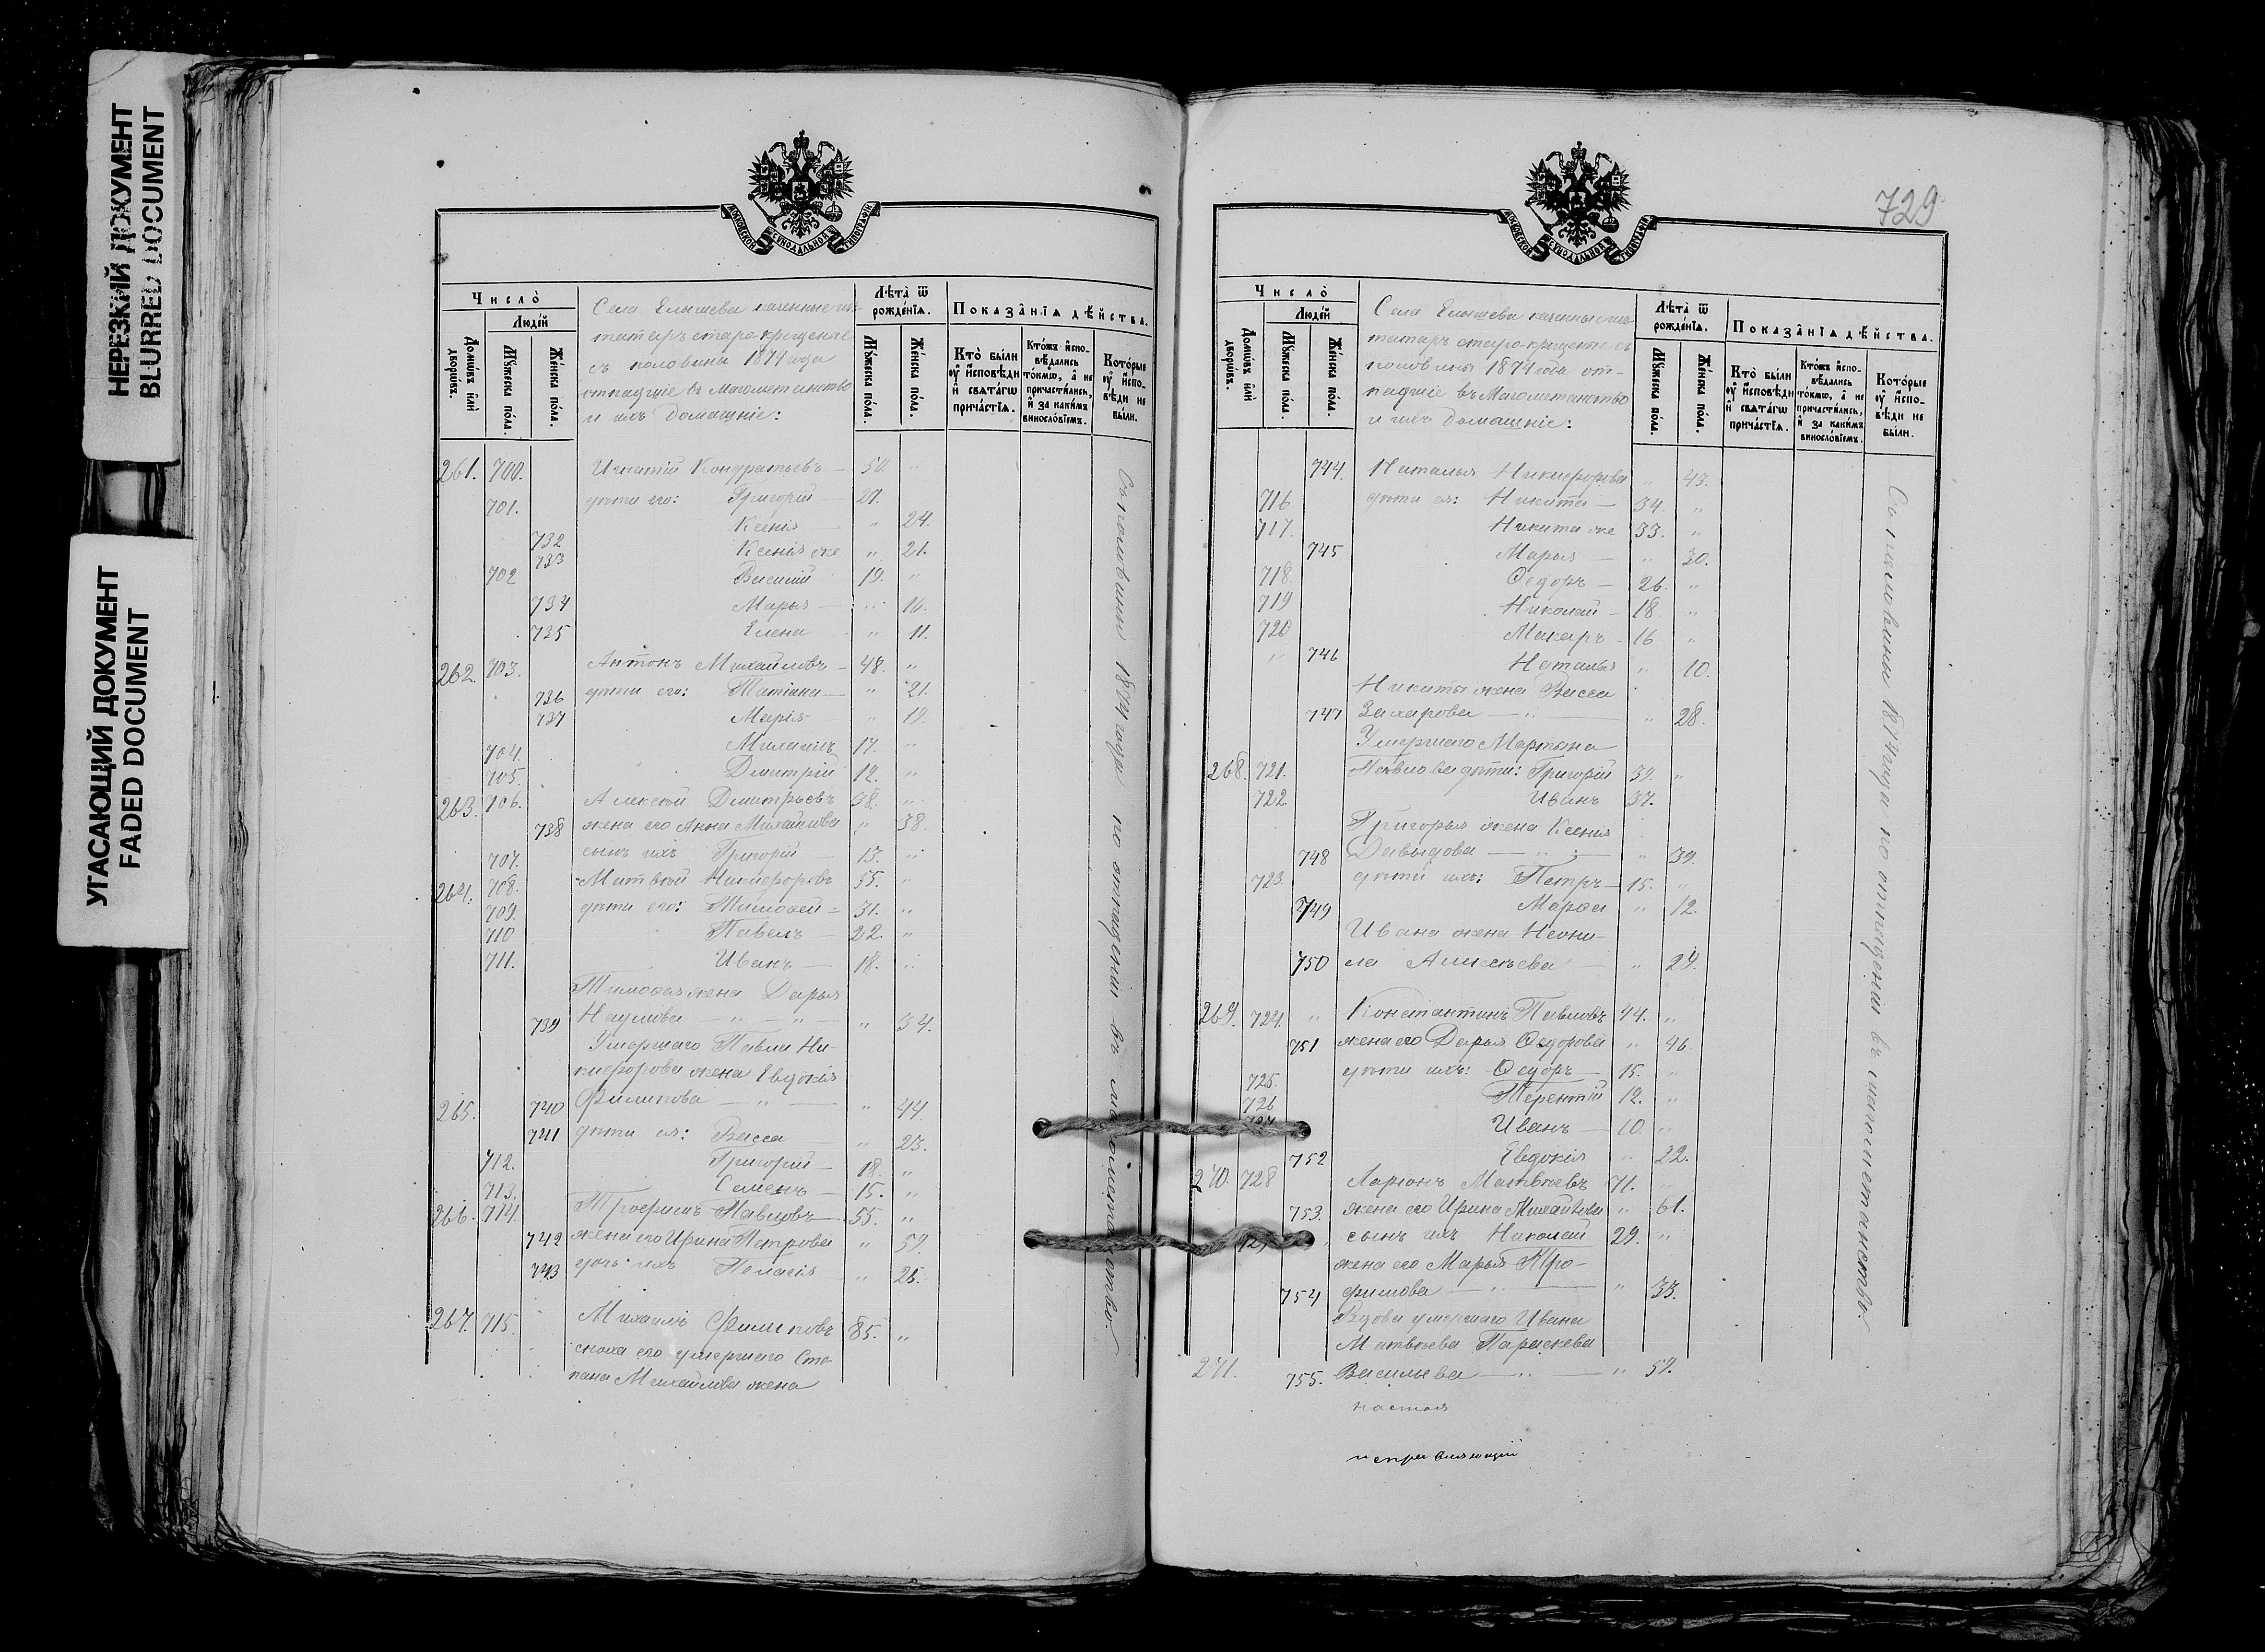 НЕРЕЗКИЙ ДОКУМЕНТ
BLURRED DOCUMENT
УГАСАЮЩИЙ ДОКУМЕНТ
FADED DOCUMENT
МОСКОВСКОЙ СѴНОДАЛЬНОЙ ТИПОГРАФІИ
Число̀
Люде́й
Домѡ́въ и҆лѝ дворѡ́въ.
Мꙋ́жеска по́ла.
Же́нска по́ла.
Села Елышева казенные изъ
татаръ старо-крещеные
съ половины 1874 года
отпадшіе въ Магометанство
и ихъ домашніе:
Лѣ́та ѿ рожде́нїѧ.
Мꙋ́жеска по́ла.
Же́нска по́ла.
Показа̑нїѧ дѣ́йства.
Кто̀ бы́ли оу҆ и҆спо́вѣди и҆ свѧта́гѡ прича́стїѧ.
Кто́жъ и҆спо-вѣ́дались то́кмѡ, а҆ не причасти́лись, и҆ за каки́мъ виносло́вїемъ.
Кото́рые оу҆ и҆спо-вѣди не бы́ли.
261. 700. Игнатій Кондратьевъ 50. "
701. дѣти его: Григорій 27.
732 Ксенія " 24.
733 Ксенія же " 21.
702 Василій 19. "
734 Марья " 16.
735 Елена " 11.
262. 703. Антонъ Михайловъ 48. "
736 дѣти его: Татіана " 21.
737 Марія " 19.
704. Михаилъ 17. "
705. Дмитрій 12. "
263. 706. Алексѣй Дмитріевъ 38. "
738 жена его Анна Михайлова " 38.
707. сынъ ихъ Григорій 13. "
264. 708. Матвѣй Никифоровъ 55. "
709. дѣти его: Тимоѳей 31. "
710 Павелъ 22. "
711. Иванъ 18. "
Тимоѳея жена Дарья
739 Наумова " " " 34.
Умершаго Павла Ни-
кифорова жена Евдокія
265. 740 Филипова " " 44.
741 дѣти ея: Васса " 23.
712. Григорій 18. "
713. Семенъ 15. "
266. 714. Трофимъ Павловъ 55. "
742 жена его Ирина Петрова " 59.
743 дочь ихъ Пелагія " 26.
267. 715. Михаилъ Филиповъ 85. "
сноха его умершаго Сте-
пана Михайлова жена
Съ половины 1874 года по отпаденіи въ магометанство.
729
МОСКОВСКОЙ СѴНОДАЛЬНОЙ ТИПОГРАФІИ
Число̀
Люде́й
Домѡ́въ и҆лѝ дворѡ́въ.
Мꙋ́жеска по́ла.
Же́нска по́ла.
Села Елышева казенные изъ
татаръ старо-крещеные съ
половины 1874 года от-
падшіе въ Магометанство
и ихъ домашніе:
Лѣ́та ѿ рожде́нїѧ.
Мꙋ́жеска по́ла.
Же́нска по́ла.
Показа̑нїѧ дѣ́йства.
Кто̀ бы́ли оу҆ и҆спо́вѣди и҆ свѧта́гѡ прича́стїѧ.
Кто́жъ и҆спо-вѣ́дались то́кмѡ, а҆ не причасти́лись, и҆ за каки́мъ виносло́вїемъ.
Кото́рые оу҆ и҆спо-вѣди не бы́ли.
744. Наталья Никифорова " 43.
716 дѣти ея: Никита 34. "
717. Никита же 33. "
745 Марья " 30.
718. Ѳедоръ 26. "
719 Николай 18. "
720 Макаръ 16 "
746 Наталья " 10.
Никиты жена Васса
747 Захарова " " 28.
Умершаго Мартына
268. 721. Павлова дѣти: Григорій 39. "
722 Иванъ 37.
Григорья жена Ксенія
748 Давыдова " " 39.
723. дѣти ихъ: Петръ 15. "
749 Марѳа " 12.
Ивана жена Неони-
750 ла Алексѣева " 29.
269. 724. " Константинъ Павловъ 44. "
751 жена его Дарья Ѳедорова " 46.
725. дѣти ихъ: Ѳедоръ 15. "
726 Терентій 12. "
Иванъ 10. "
752 Евдокія " 22.
270. 728 Ларіонъ Матвѣевъ 71. "
753. жена его Ирина Михайлова " 61.
сынъ ихъ Николай 29. "
жена его Марья Тро-
754 фимова " " 33.
Вдова умершаго Ивана
Матвѣева Параскева
271. 755. Васильева " " 59.
настоя
исправляющій
Съ половины 1874 года по отпаденіи въ магометанство.